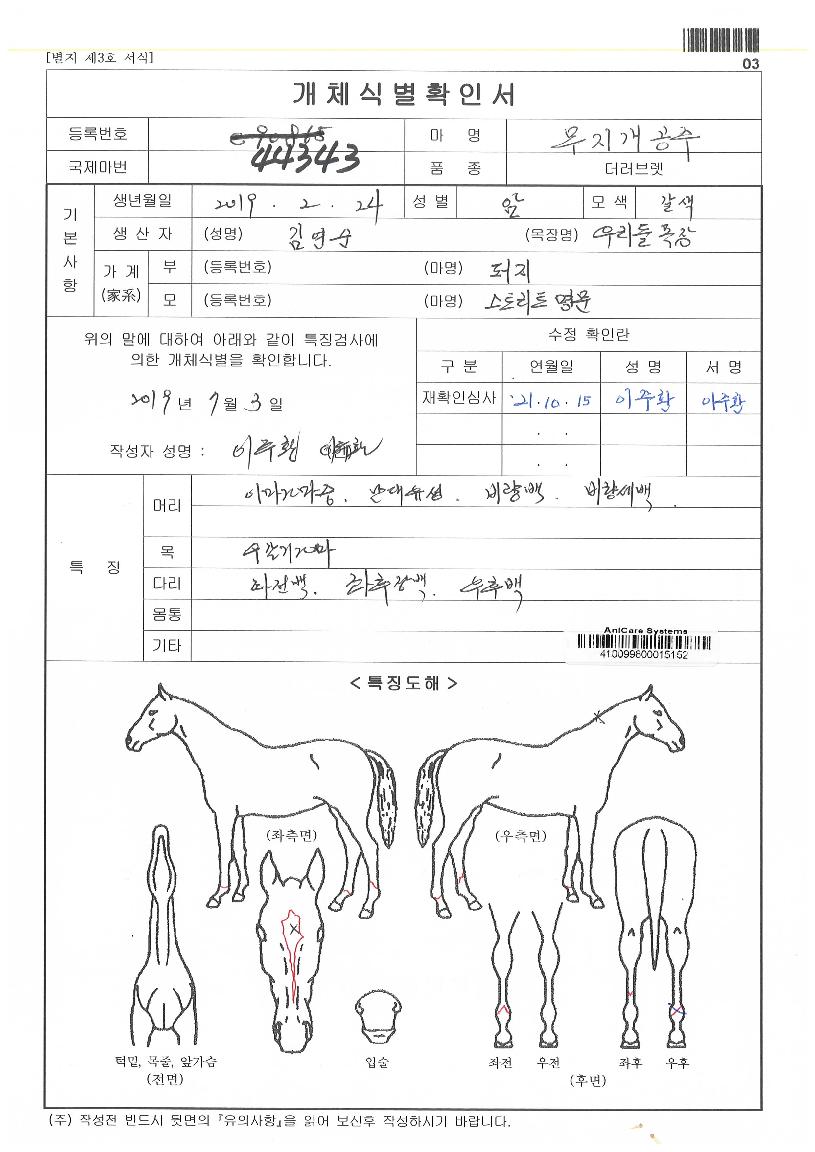 [별지 제3호 서식]
03
개체식별확인서
등록번호
마 명 무지개공주
국제마번 44343
품 종 더러브렛
기본사항
생년월일 2019 . 2 . 24 성 별 암 모 색 갈색
생 산 자 (성명) 김연수 (목장명) 우리들목장
가 계 (家系)
부 (등록번호) (마명) 퍼지
모 (등록번호) (마명) 스트리트명문
위의 말에 대하여 아래와 같이 특징검사에
의한 개체식별을 확인합니다.
2019 년 7 월 3 일
작성자 성명 : 이주환
수정 확인란
구 분 연월일 성 명 서 명
재확인심사 '21. 10 . 15 이주환 이주환
. .
. .
특 징
머리 이마가마중. 난대유성. 비량백. 비량세백.
목 우갈기가마
다리 좌전백. 좌후장백. 우후백
몸통
기타
AniCare Systems
410099800015152
< 특징도해 >
(좌측면) (우측면)
턱밑, 목줄, 앞가슴
(전면)
입술
좌전 우전 좌후 우후
(후면)
(주) 작성전 반드시 뒷면의 『유의사항』을 읽어 보신후 작성하시기 바랍니다.